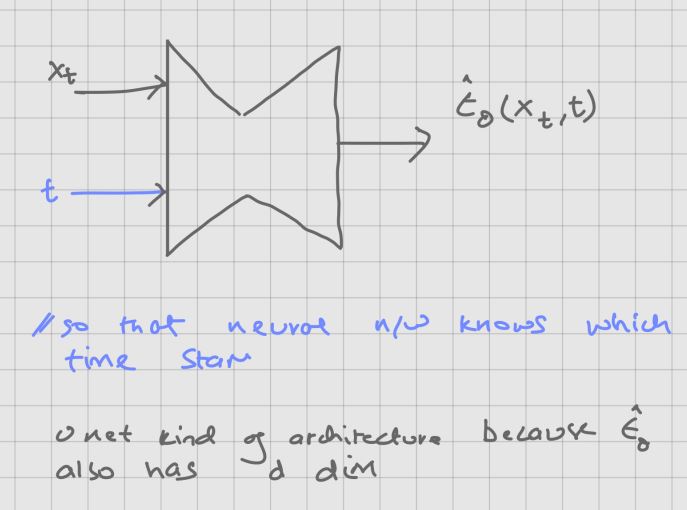 xₜ
ε̂_θ(xₜ, t)
t
// so that neural n/w knows which
time stam
unet kind of architecture because ε̂_θ
also has d dim